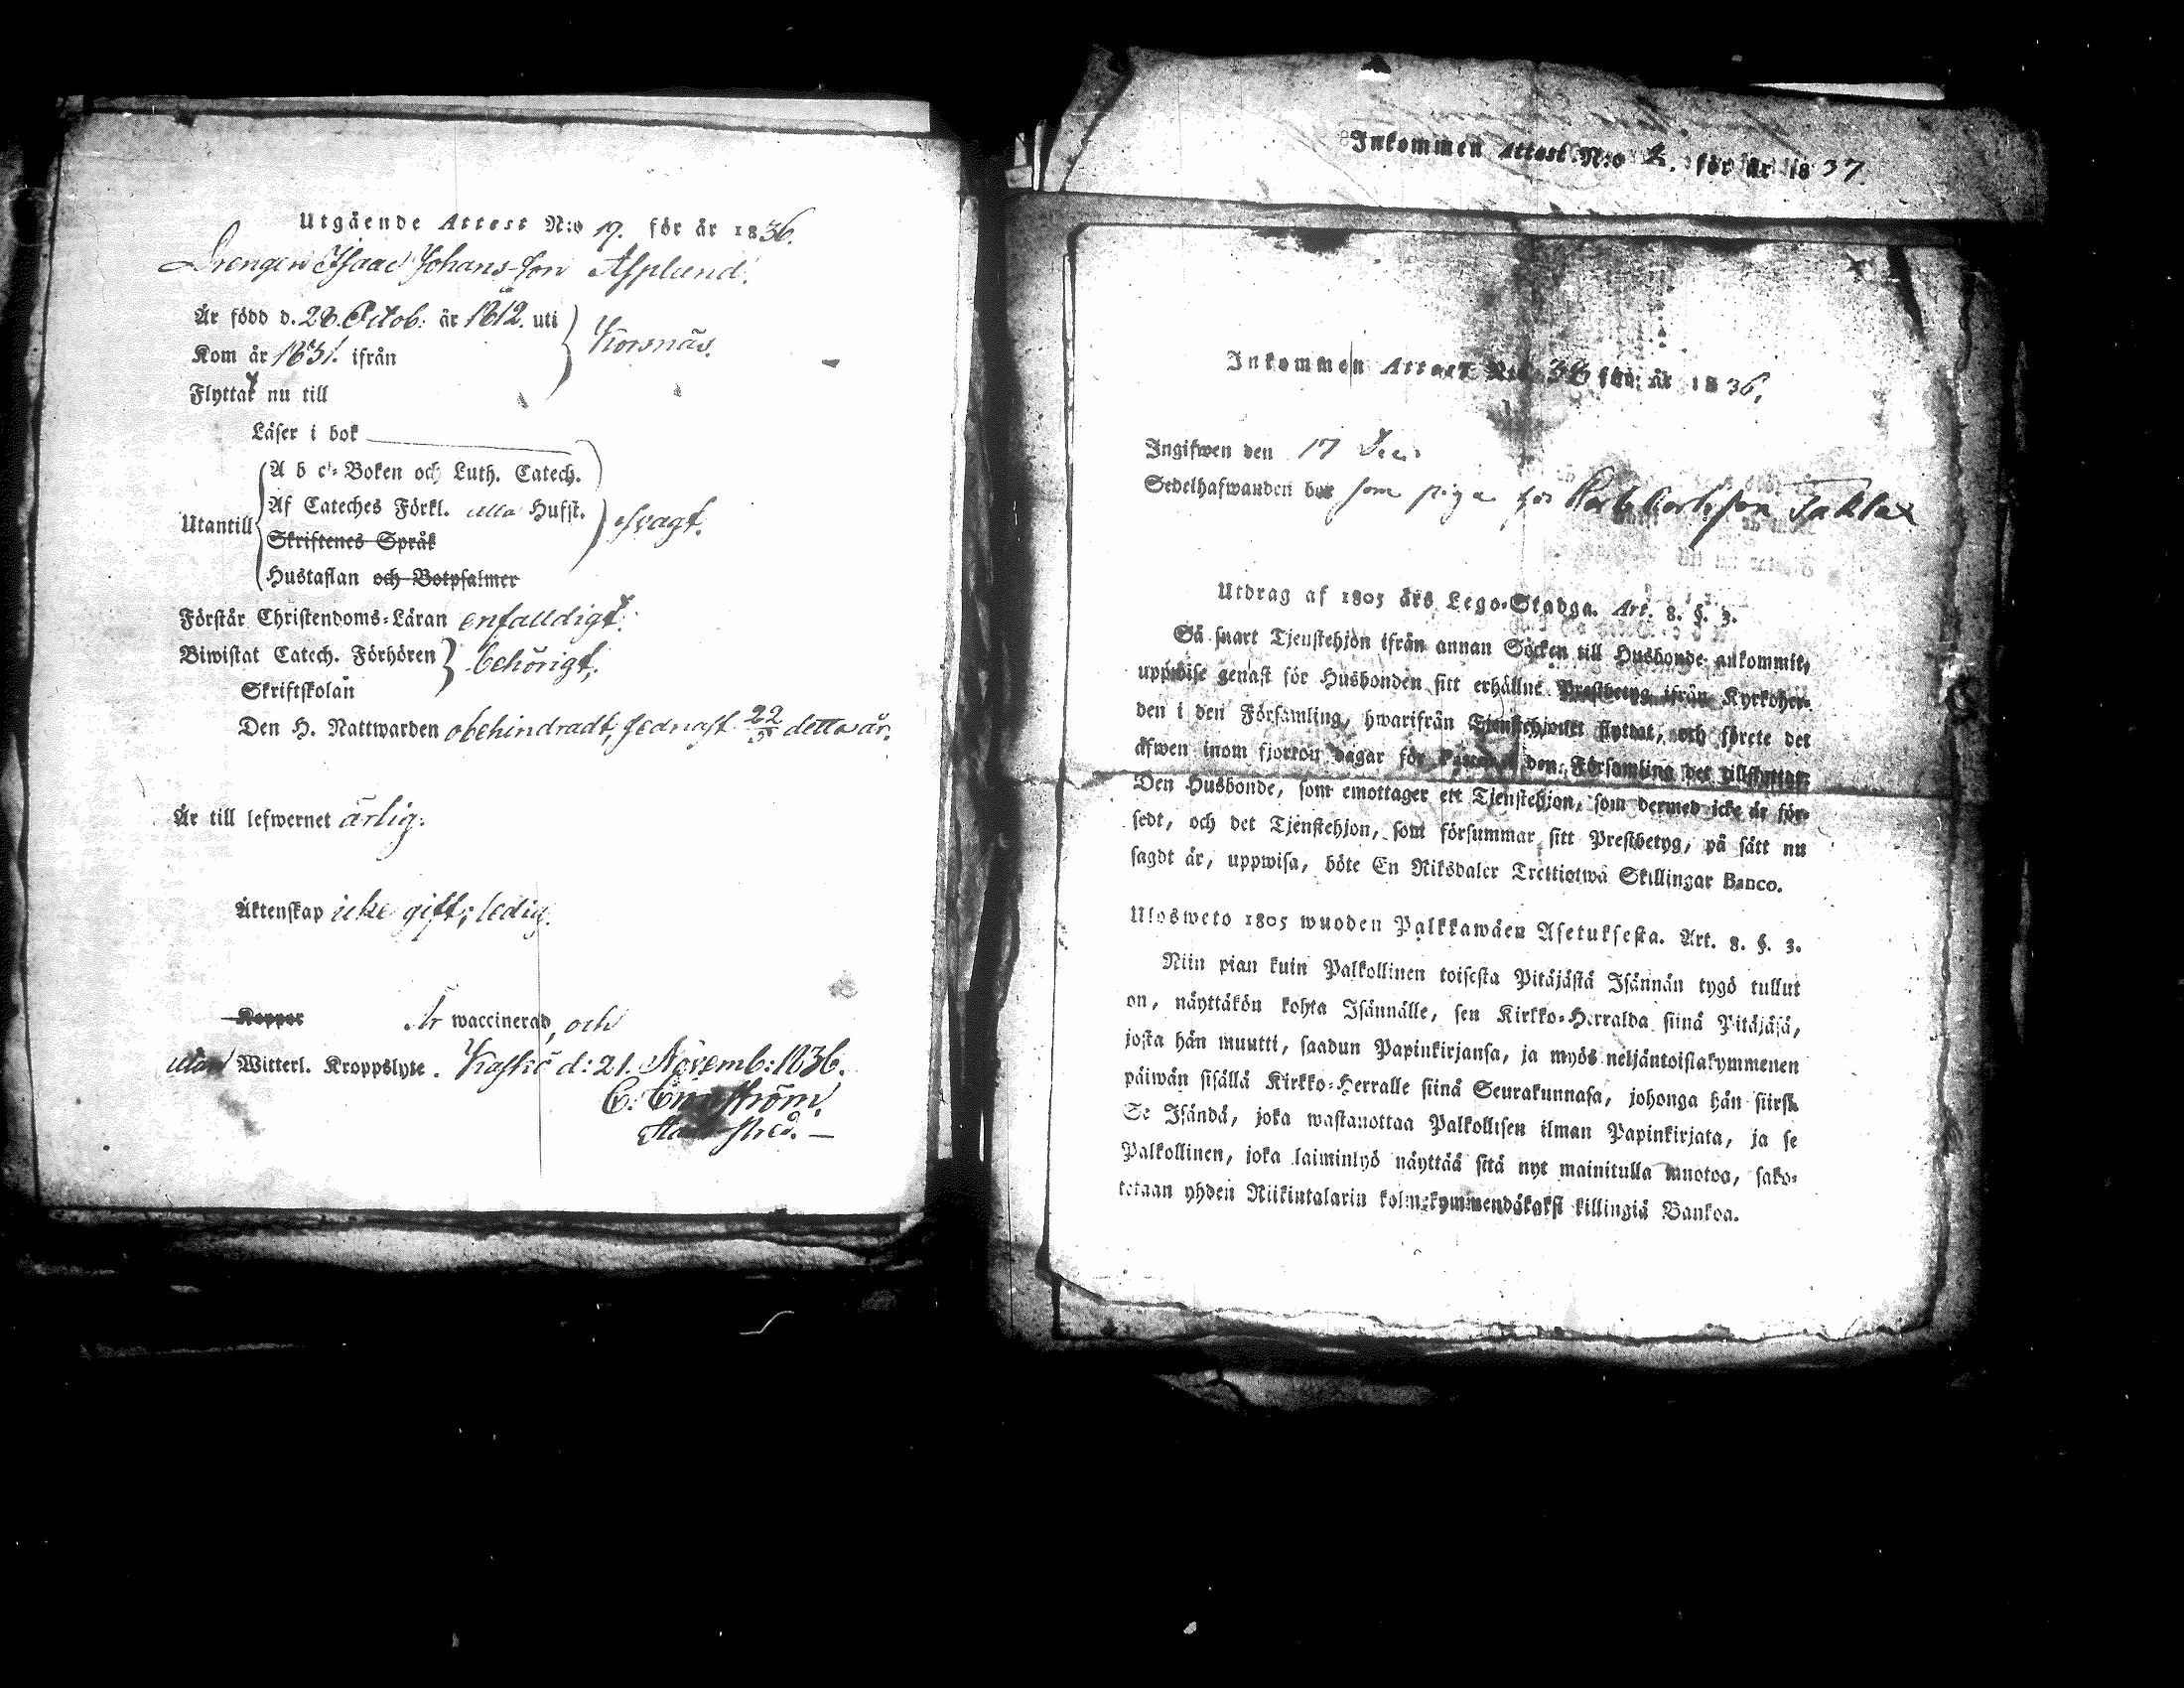 Utgående Attest N:o 19. för år 1836.
Drengen Isaac Johans-son Asplund.
Är född d. 28. Octob: år 1812. uti
Kom år 1831. ifrån
Korsnäs.
Flyttar nu till
Läser i bok
A b c-Boken och Luth. Catech.
Af Cateches Förkl. Hufst.
Utantill
svagt.
Skriftenes Språk
Hustaflan och Botpsalmer
Förstår Christendoms-Läran enfalldigt.
Biwistat Catech. Förhören
behörigt,
Skriftskolan
Den H. Nattwarden obehindradt, sednast 22/5 detta år.
Är till lefwernet ärlig.
Äktenskap icke gift; ledig.
Koppor Är waccinerad, och
utan Witterl. Kroppslyte. Kaskö d: 21. Novemb: 1836.
Inkommen Attest N:o 2. för år 1837.
Inkommen Attest N:o 38 för år 1836.
Ingifwen den 17 Dec.
Sedelhafwanden bor som piga hos Carlsson Taklax
Utdrag af 1805 års Lego-Stadga. Art. 8. §. 3.
Så snart Tjenstehjon ifrån annan Socken till Husbonde ankommit,
uppwise genast för Husbonden sitt erhållne Prestbetyg ifrån Kyrkoher-
den i den Församling, hwarifrån Tjenstehjonet flyttat, och förete det
äfwen inom fjorton dagar för den Församling det tillflyttat.
Den Husbonde, som emottager ett Tjenstehjon, som dermed icke är för-
sedt, och det Tjenstehjon, som försummar sitt Prestbetyg, på sätt nu
sagdt är, uppwisa, böte En Riksdaler Trettiotwå Skillingar Banco.
Ulosweto 1805 wuoden Palkkawäen Asetuksesta. Art. 8. §. 3.
Niin pian kuin Palkollinen toisesta Pitäjästä Isännän tygö tullut
on, näyttäkön kohta Isännälle, sen Kirkko-Herralda siinä Pitäjäsä,
josta hän muutti, saadun Papinkirjansa, ja myös neljäntoistakymmenen
päiwän sisällä Kirkko-Herralle siinä Seurakunnasa, johonga hän siirsi.
Se Isändä, joka wastanottaa Palkollisen ilman Papinkirjata, ja se
Palkollinen, joka laiminlyö näyttää sitä nyt mainitulla muotoa, sako-
tetaan yhden Riikintalarin kolmekymmendäkaksi killingiä Bankoa.